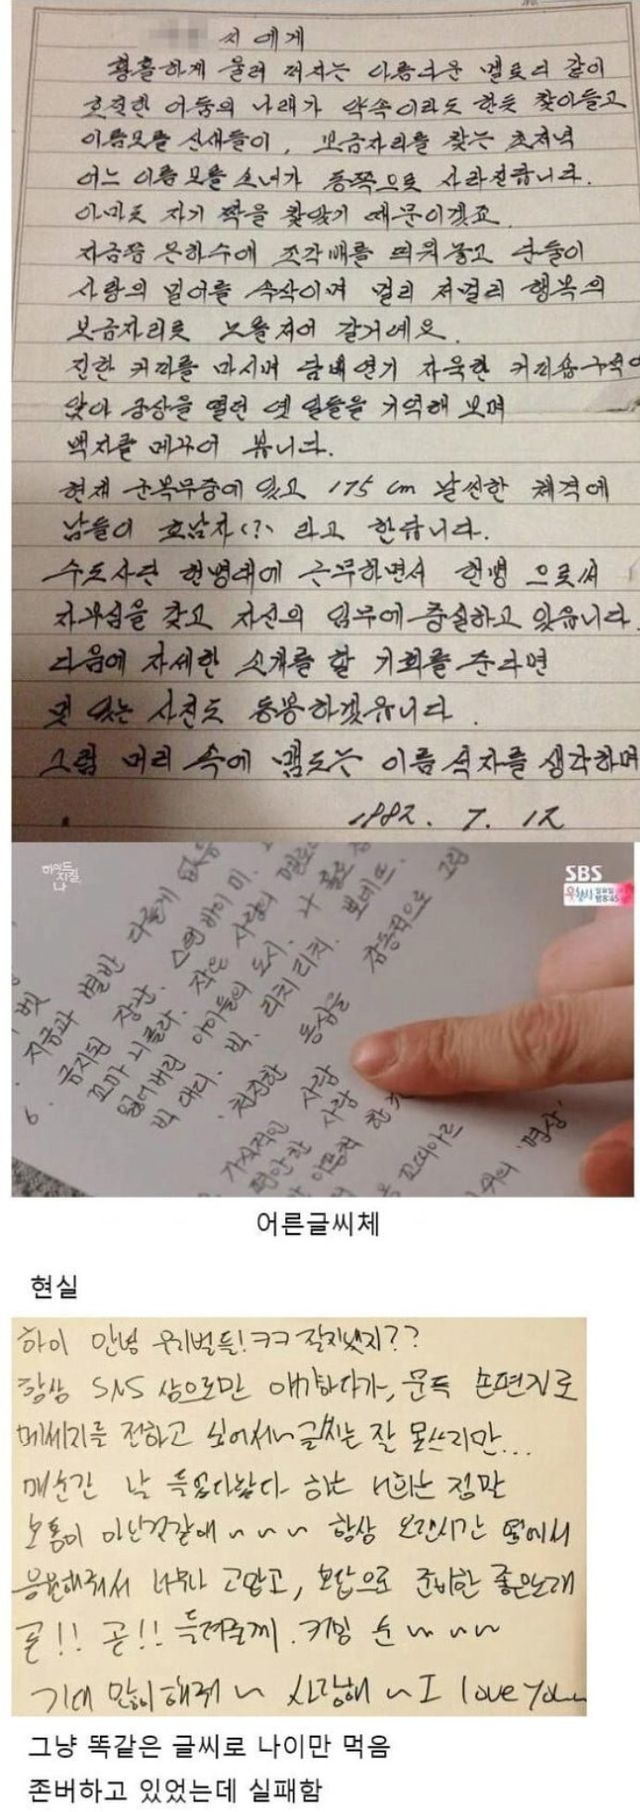 씨에게
황홀하게 울려 퍼지는 아름다운 멜로디 같이
호젓한 어둠의 나래가 약속이라도 한듯 찾아들고
이름모를 산새들이, 보금자리를 찾는 초저녁
어느 이름 모를 소녀가 동쪽으로 사라진답니다.
아마도 자기 짝을 찾았기 때문이겠죠.
지금쯤 은하수에 조각배를 띄워놓고 단둘이
사랑의 밀어를 속삭이며 멀리 저멀리 행복의
보금자리로 노을저어 갈거예요.
진한 커피를 마시며 담배연기 자욱한 커피숍구석에
앉아 공상을 했던 옛 일들을 기억해 보며
백지를 메꾸어 봅니다.
현재 군복무중에 있고 175cm 날씬한 체격에
남들이 호남자(?) 라고 한답니다.
수도사단 헌병대에 근무하면서 헌병 으로써
자부심을 갖고 자신의 임무에 충실하고 있읍니다.
다음에 자세한 소개를 할 기회를 준다면
멋 있는 사진도 동봉하겠읍니다.
그럼 머리 속에 맴도는 이름 석자를 생각하며
1982. 7. 12
하이드 지킬, 나
SBS
지금과 별반 다를게 없음
6. 금지된 장난. 스탠바이미.
꼬마 니콜라. 작은 사랑의 멜로디
잃어버린 아이들의 도시. 나 홀로
빅 대디. 빅. 리치리치. 뽀네뜨.
천진한 동심을 감동적으로 그림
가식적인 사람
편안한 사람
꼬떼아르
위의 '명상'
어른글씨체
현실
하이 안녕 우리벌들!ㅋㅋ 잘지냈지??
항상 SNS 상으로만 얘기하다가, 문득 손편지로
메세지를 전하고 싶어서~ 글씨는 잘 못쓰지만...
매순간 날 듣없다놨다 하는 너희는 정말
보통이 아닌것같애~~~ 항상 오랜시간 옆에서
응원해줘서 너무나 고맙고, 보답으로 준비한 좋은노래
곧!! 곧!! 들려줄께. 커밍 순~~~
기대 많이해줘~ 사랑해~ I love you~
그냥 똑같은 글씨로 나이만 먹음
존버하고 있었는데 실패함